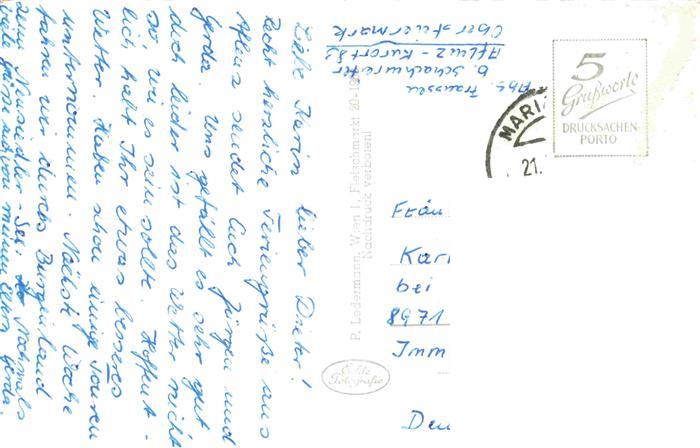 Liebe Karin, lieber Dieter!
Recht herzliche Feriengrüße aus
Aflenz sendet Euch Jürgen und
Gerda. Uns gefällt es sehr gut
doch leider ist das Wetter nicht
so, wie es sein sollte. Hoffent-
lich habt Ihr etwas besseres
Wetter. Haben schon einige Touren
unternommen. Nächste Woche
fahren wir durchs Burgenland
zum Neusiedler-See. Nochmals
viele Grüße auch von meinen Eltern Gerda.
Abs. Franssen
b. Schachnreiter
Aflenz-Kurort 83
Obersteiermark
P. Ledermann, Wien I., Fleischmarkt 20
Nachdruck verboten!
Echte
Fotografie
5
Grußworte
DRUCKSACHEN-
PORTO
MARI
21.
Fräu
Kari
bei
8971
Imm
Deu